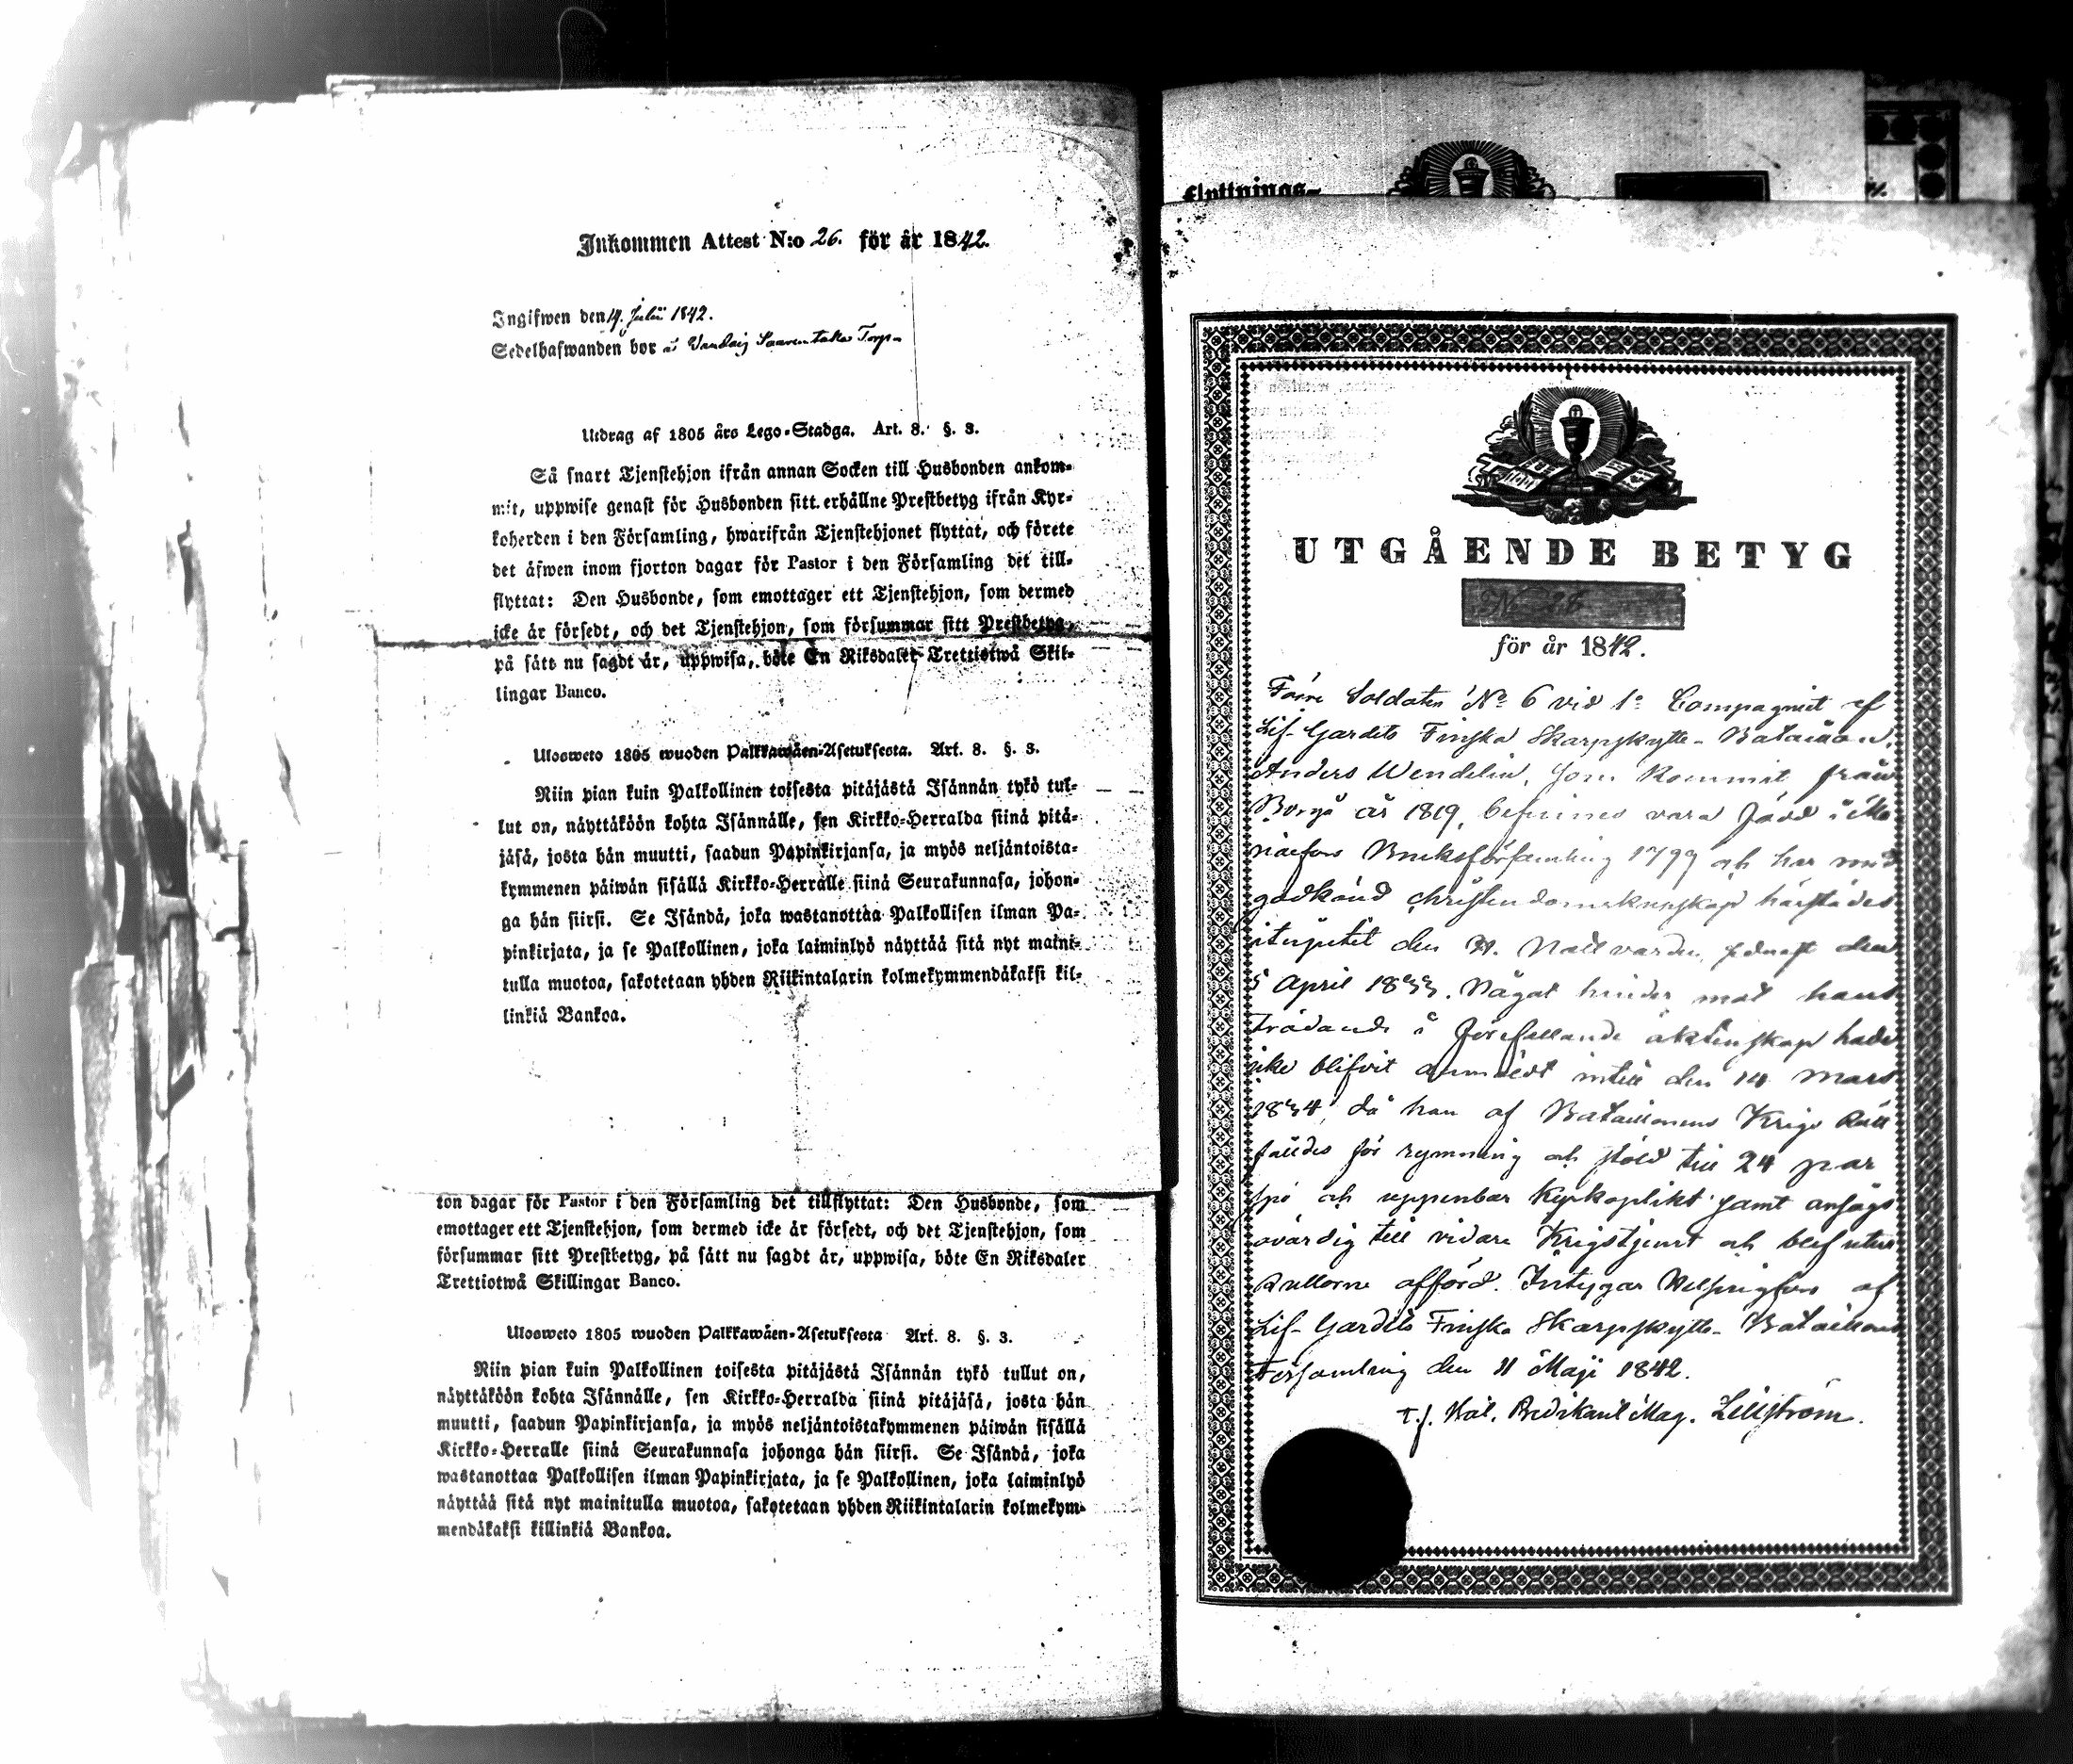 Inkommen Attest N:o 26. för år 1842.
Ingifwen den 14. Julii 1842.
Sedelhafwanden bor å Torp
Utdrag af 1805 års Lego-Stadga. Art. 8. §. 3.
Så snart Tjenstehjon ifrån annan Socken till Husbonden ankom-
mit, uppwise genast för Husbonden sitt erhållne Prestbetyg ifrån Kyr-
koherden i den Församling, hwarifrån Tjenstehjonet flyttat, och förete
det äfwen inom fjorton dagar för Pastor i den Församling det till-
flyttat: Den Husbonde, som emottager ett Tjenstehjon, som dermed
icke är försedt, och det Tjenstehjon, som försummar sitt Prestbetyg,
på sätt nu sagdt är, uppwisa, böte En Riksdaler Trettiotwå Skil-
lingar Banco.
Ulosweto 1805 wuoden Palkkawäen-Asetuksesta. Art. 8. §. 3.
Niin pian kuin Palkollinen toisesta pitäjästä Isännän tykö tul-
lut on, näyttäköön kohta Isännälle, sen Kirkko-Herralda siinä pitä-
jäsä, josta hän muutti, saadun Papinkirjansa, ja myös neljäntoista-
kymmenen päiwän sisällä Kirkko-Herralle siinä Seurakunnasa, johon-
ga hän siirsi. Se Isändä, joka wastanottaa Palkollisen ilman Pa-
pinkirjata, ja se Palkollinen, joka laiminlyö näyttää sitä nyt maini-
tulla muotoa, sakotetaan yhden Riikintalarin kolmekymmendäkaksi kil-
linkiä Bankoa.
ton dagar för Pastor i den Församling det tillflyttat: Den Husbonde, som
emottager ett Tjenstehjon, som dermed icke är försedt, och det Tjenstehjon, som
försummar sitt Prestbetyg, på sätt nu sagdt är, uppwisa, böte En Riksdaler
Trettiotwå Skillingar Banco.
Ulosweto 1805 wuoden Palkkawäen-Asetuksesta Art. 8. §. 3.
Niin pian kuin Palkollinen toisesta pitäjästä Isännän tykö tullut on,
näyttäköön kohta Isännälle, sen Kirkko-Herralda siinä pitäjäsä, josta hän
muutti, saadun Papinkirjansa, ja myös neljäntoistakymmenen päiwän sisällä
Kirkko-Herralle siinä Seurakunnasa johonga hän siirsi. Se Isändä, joka
wastanottaa Palkollisen ilman Papinkirjata, ja se Palkollinen, joka laiminlyö
näyttää sitä nyt mainitulla muotoa, sakotetaan yhden Riikintalarin kolmekym-
mendäkaksi killinkiä Bankoa.
flyttnings-
UTGÅENDE BETYG
No 26
för år 1842.
Förre Soldaten No 6 vid 1a Compagniet af
Lif-Gardets Finska Skarpskytte-Bataillon,
Anders Wendelin, som kommit från
Borgå år 1819, befinnes vara född i
Bruksförsamling 1799 och har med
godkänd christendomskunskap härstädes
begått den H. Nattvarden, sednast den
5 April 1833. Något hinder mot hans
trädande i förefallande äktenskap hade
icke blifvit anmäldt intill den 14 Mars
1834, då han af Bataillonens Krigs Rätt
fälldes för rymning och stöld till 24 par
spö och uppenbar Kyrkoplikt samt ansågs
ovärdig till vidare Krigstjenst och blef utur
Rullorne afförd. Intygar Helsingfors af
Lif-Gardets Finska Skarpskytte-Bataillons
Församling den 11 Maji 1842.
T.f. Bat. Predikant Mag. Lillström.